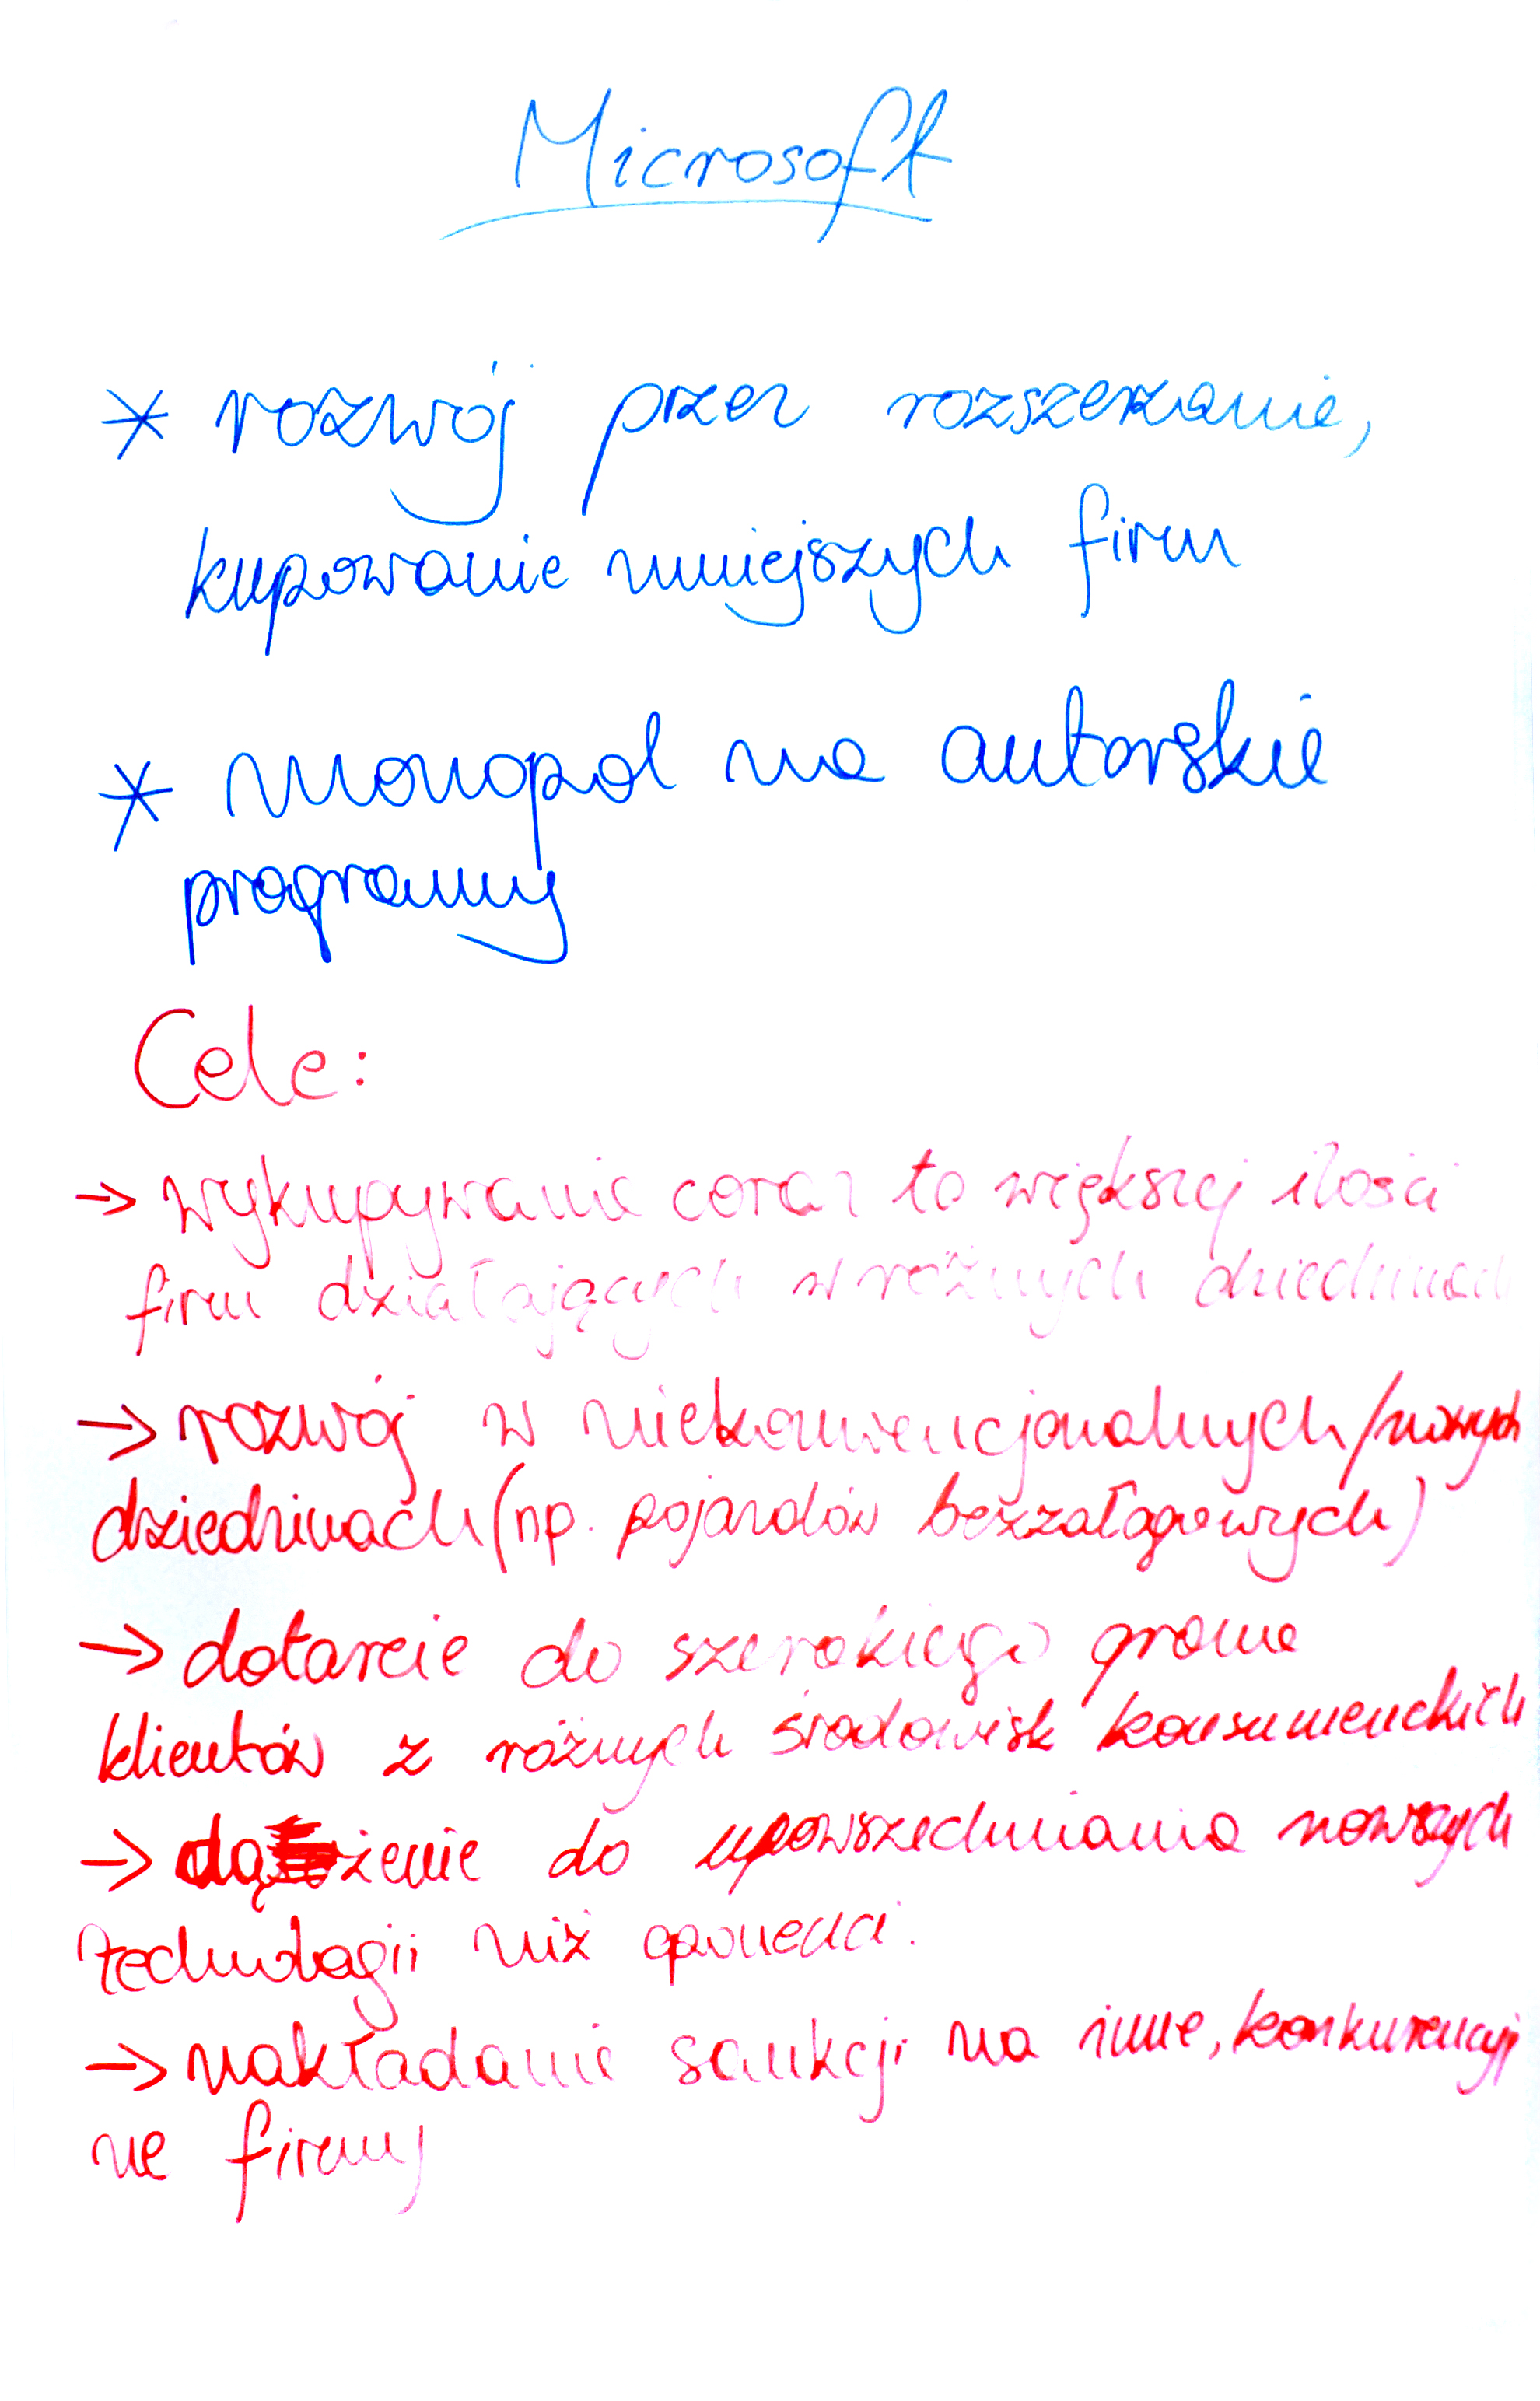 Microsoft
* rozwój przez rozszerzanie,
kupowanie mniejszych firm
* monopol na autorskie
programy
Cele:
-> wykupywanie coraz to większej ilości
firm działających w różnych dziedzinach
-> rozwój w niekonwencjonalnych/nowych
dziedzinach (np. pojazdów bezzałogowych)
-> dotarcie do szerokiego grona
klientów z różnych środowisk konsumenckich
-> dążenie do upowszechniania nowszych
technologii niż oponenci.
-> nakładanie sankcji na inne, konkurencyj
ne firmy